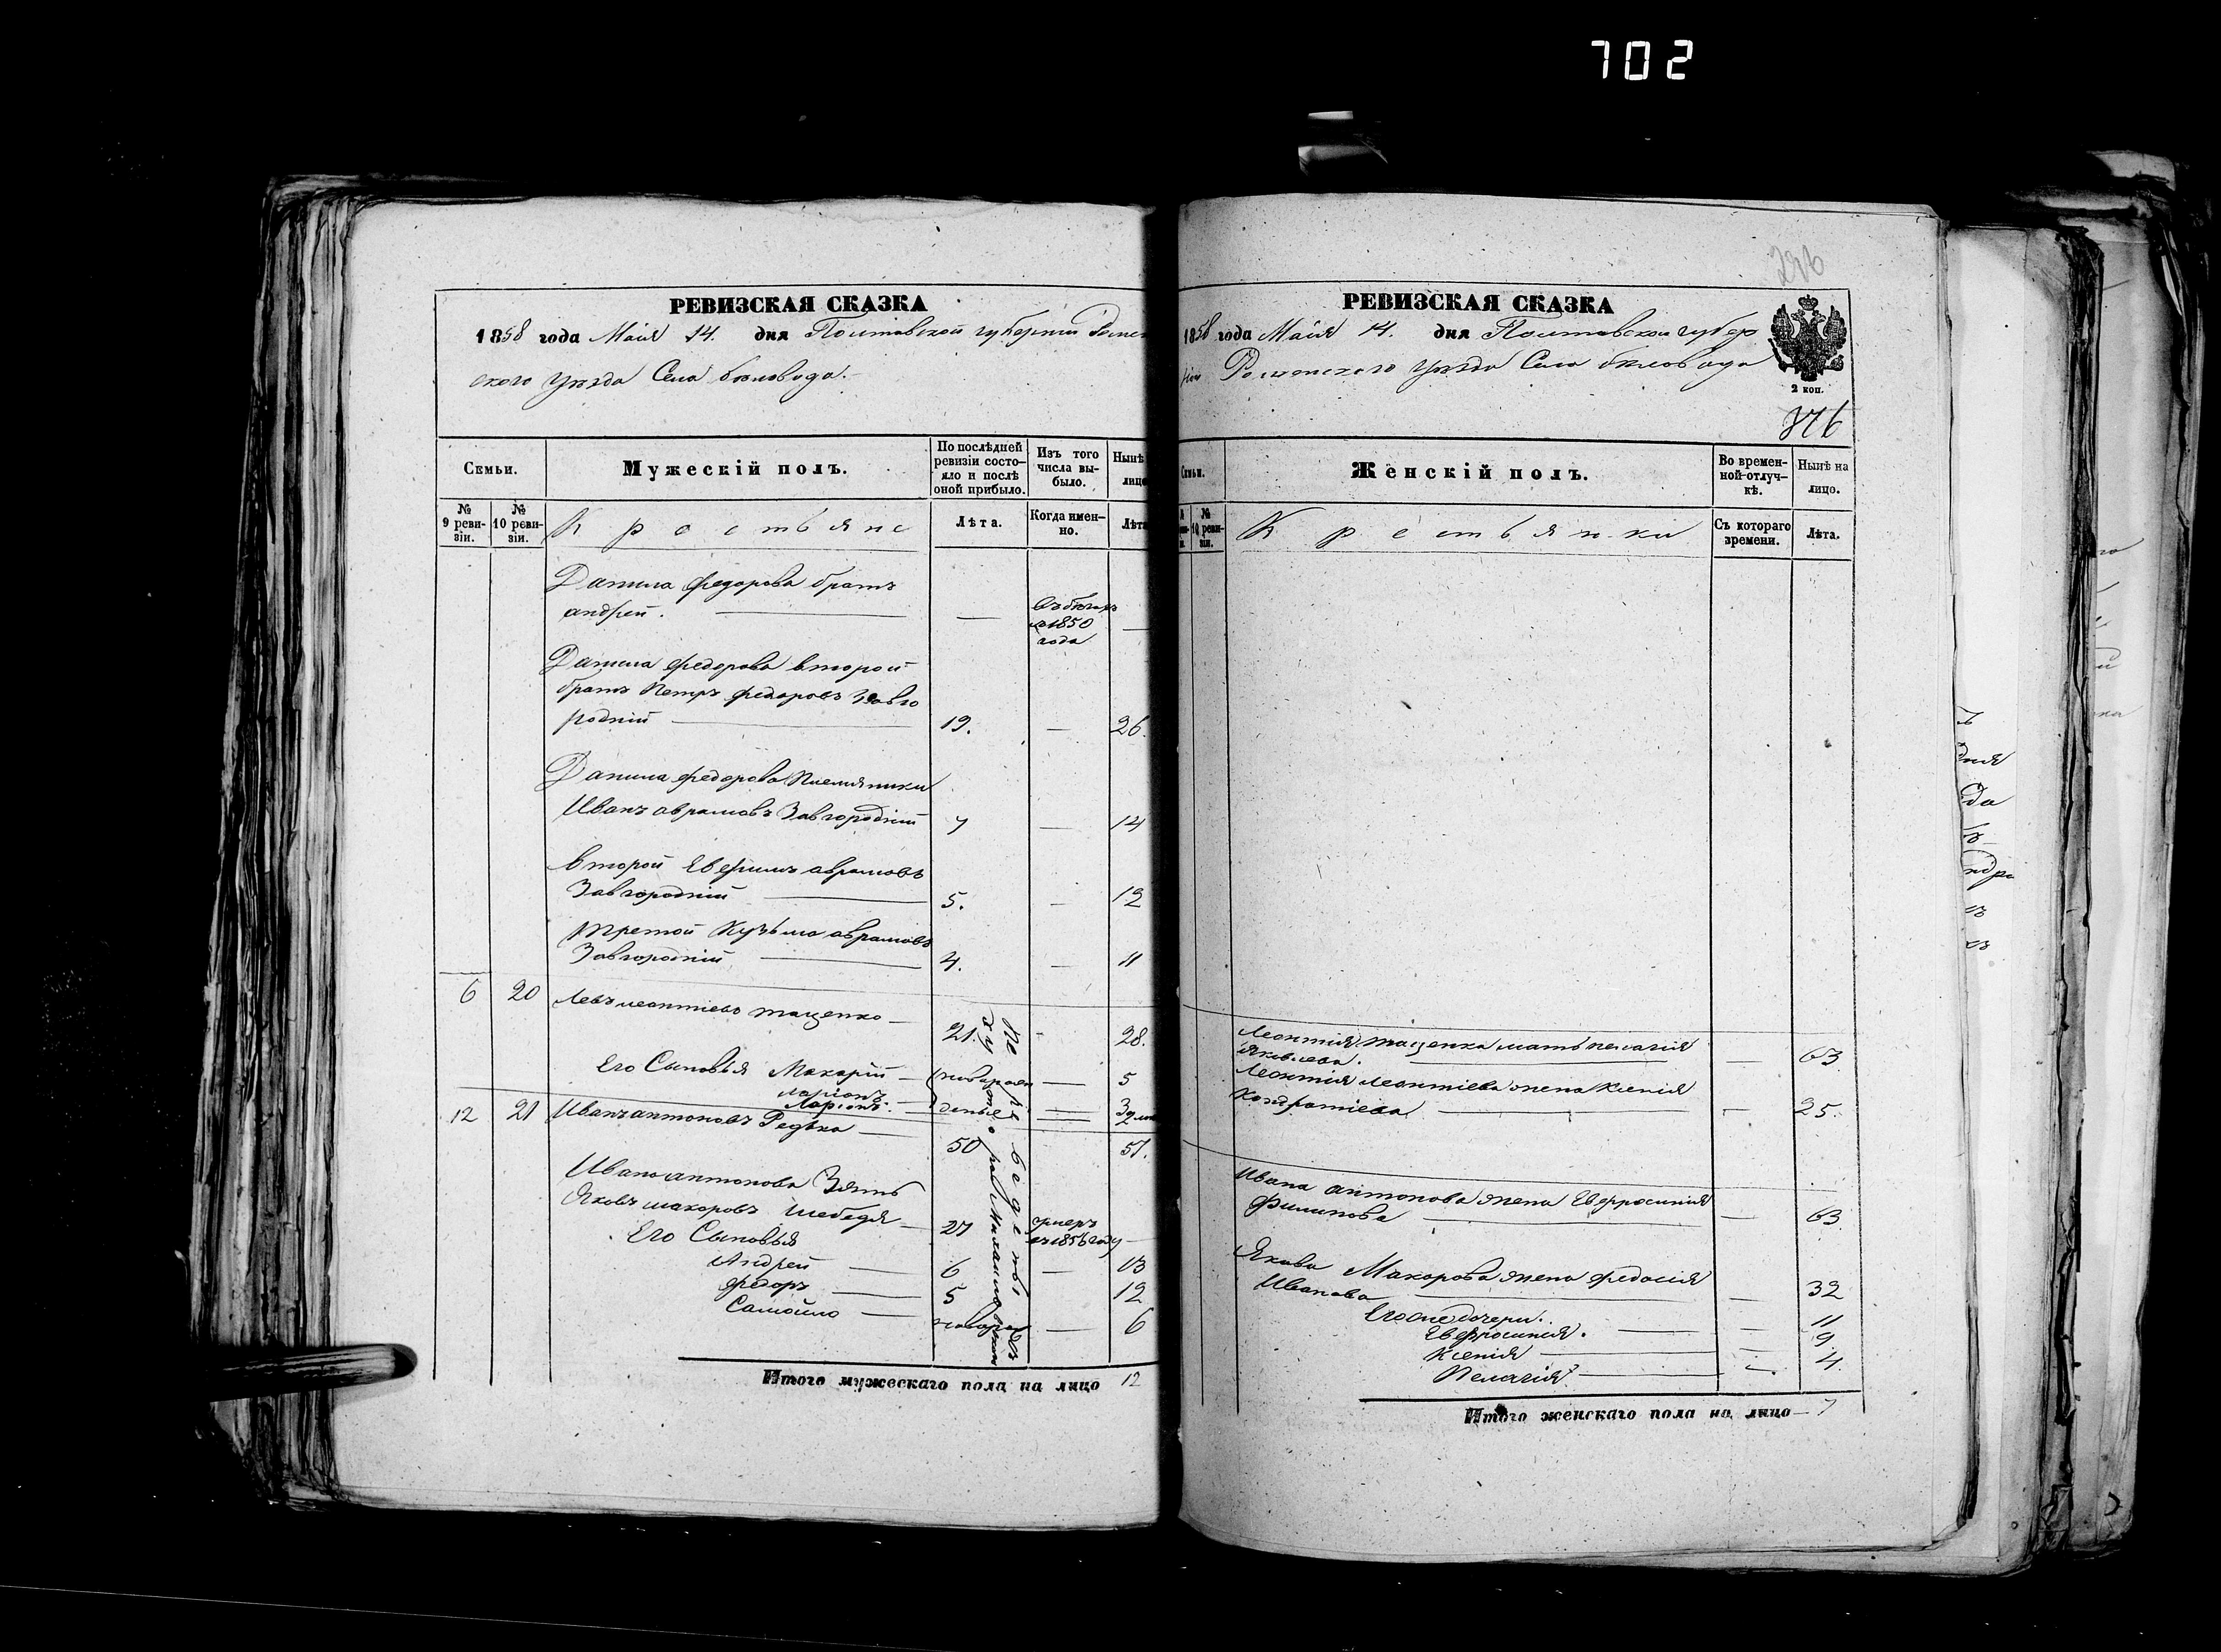 702
РЕВИЗСКАЯ СКАЗКА
1858 года Маія 14. дня Полтавской губерніи Ромен
ского уѣзда Села Бѣловода.
Семьи.
Мужескій полъ.
По послѣдней ревизіи состояло и послѣ оной прибыло.
Изъ того числа выбыло.
Нынѣ лицо
№ 9 ревизіи.
№ 10 ревизіи.
Крестьяне
Лѣта.
Когда именно.
Лѣта
Данила Федорова братъ
андрей. — въ бѣгахъ съ 1850 года —
Данила Федорова второй
братъ Петръ Федоровъ Завго
родній 19. — 26.
Данила Федорова Племяники
Иванъ аврамовъ Завгородній 7 — 14
второй Евфимъ аврамовъ
Завгородній 5. — 12
третой Кузьма аврамовъ
Завгородній 4. — 11
6 20 Левъ леонтіевъ тащенко 21. - 28.
Его Сыновья Макарій — 5
Ларіонъ
Ларіонъ. —
12 21 Иванъ антоновъ Редька — 50 51.
Ивана антонова Зять
Яковъ макаровъ Шебедя — 27 умеръ въ 1856 году —
Его Сыновья
Андрей — 6 — 13
Федоръ — 5 12
Самойло — новорож — 6
Переведены
Итого мужескаго пола на лицо 12
РЕВИЗСКАЯ СКАЗКА
1858 года Маія 14. дня Полтавской губер
ніи Роменского уѣзда Села Бѣловода
2 коп.
876
Семьи.
Женскій полъ.
Во временной отлучкѣ.
Нынѣ на лицо.
№ 10 ревизіи.
Крестьянки
Съ котораго времени.
Лѣта.
Леонтія тащенка мать пелагія
Яковлева. — 63
Леонтія леонтіева жена Ксенія
Кондратіева — 25.
Ивана антонова жена Евфросинія
Филипова — 63
Якова Макарова жена Федосія
Иванова — 32
Его дочери. — 11
Евфросинія. — 9
Ксенія — 4.
Пелагія —
Итого женскаго пола на лицо — 7